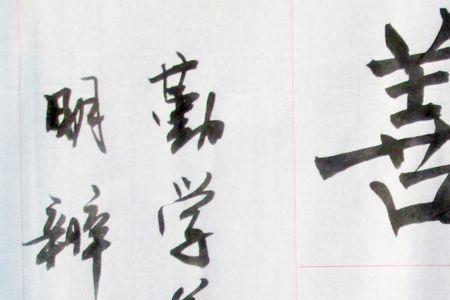 善
勤学
明辨